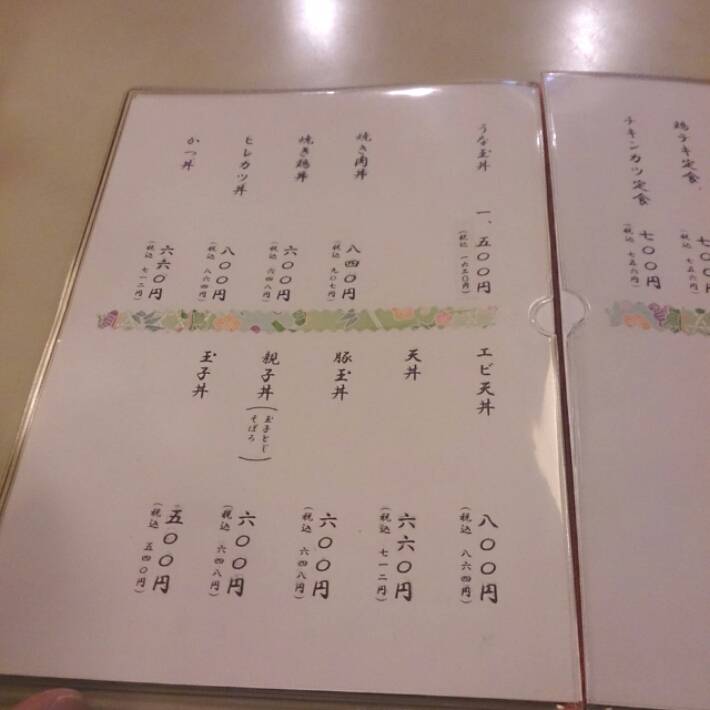 鶏テキ定食
七〇〇
(税込 七五六
チキンカツ定食
七〇〇円
(税込 七五六円)
うな玉丼
一、五〇〇円
(税込 一六二〇円)
焼き肉丼
八四〇円
(税込 九〇七円)
焼き鶏丼
六〇〇円
(税込 六四八円)
ヒレカツ丼
八〇〇円
(税込 八六四円)
かつ丼
六六〇円
(税込 七一二円)
エビ天丼
八〇〇円
(税込 八六四円)
天丼
六六〇円
(税込 七一二円)
豚玉丼
六〇〇円
(税込 六四八円)
親子丼
(玉子とじ
そぼろ)
六〇〇円
(税込 六四八円)
玉子丼
五〇〇円
(税込 五四〇円)